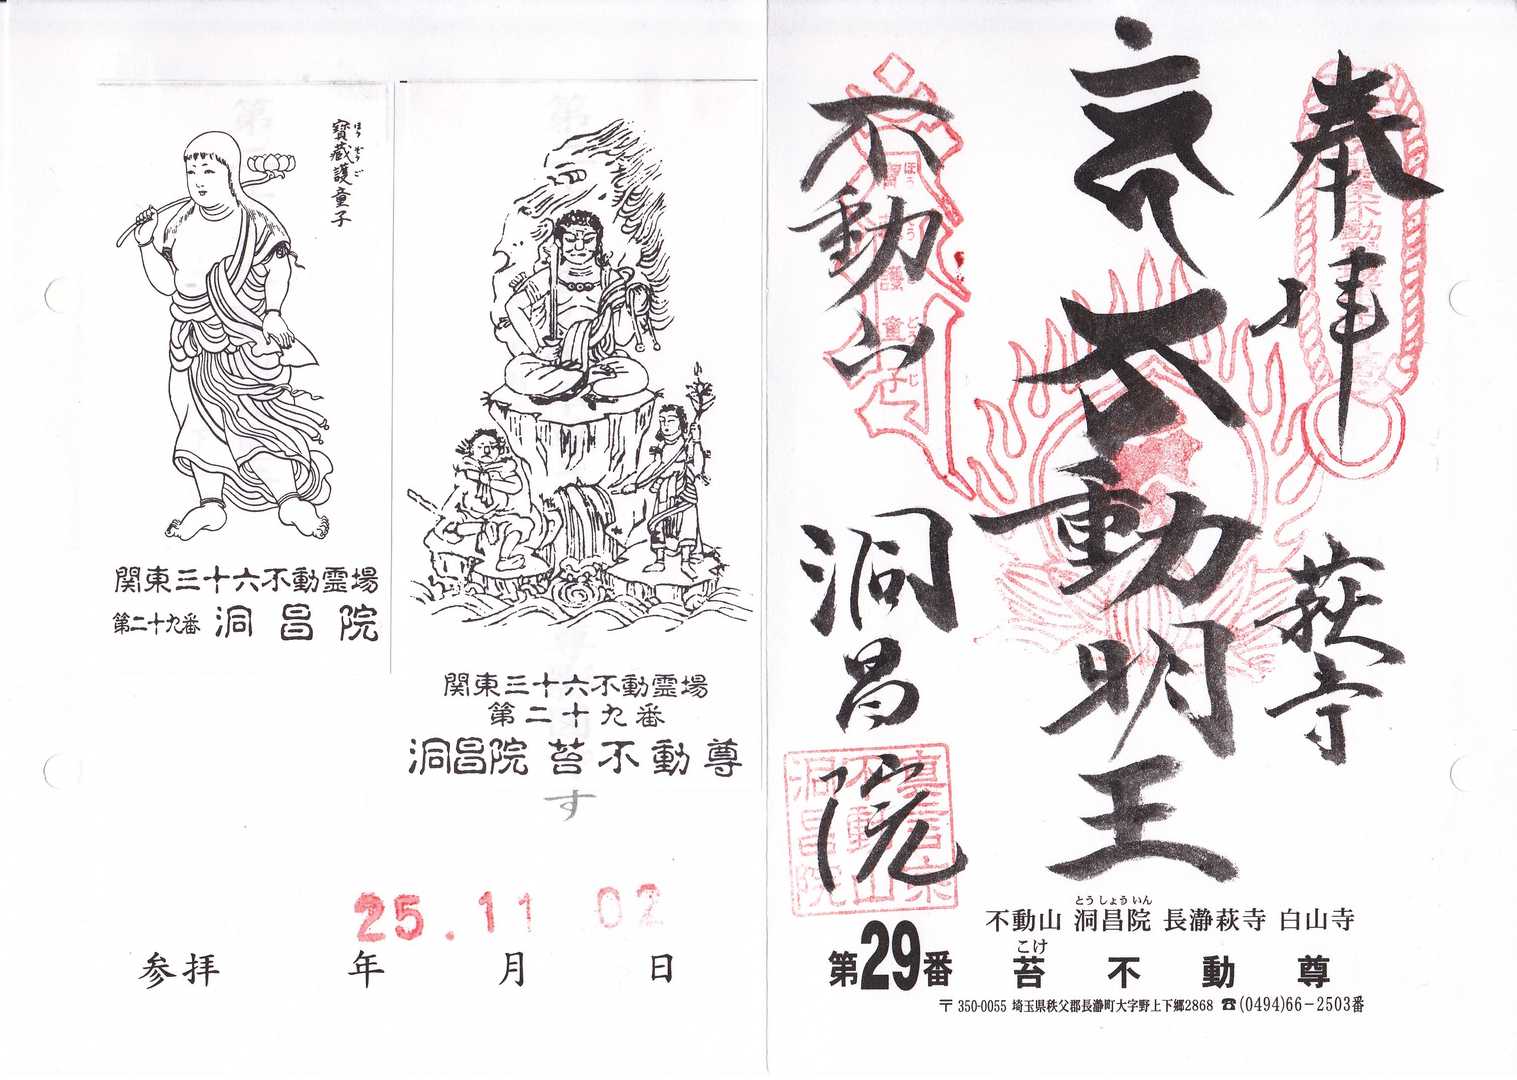 寳蔵護童子
ほうぞうご
関東三十六不動霊場
第二十九番 洞昌院
関東三十六不動霊場
第二十九番
洞昌院 苔不動尊
す
25.11 02
参拝 年 月 日
奉拝
萩寺
大動明王
不動山
洞昌院
ほうぞうごどうじ
不動山 洞昌院 長瀞萩寺 白山寺
とうしょういん
第29番 苔不動尊
こけ
〒350-0055 埼玉県秩父郡長瀞町大字野上下郷2868 ☎(0494)66-2503番